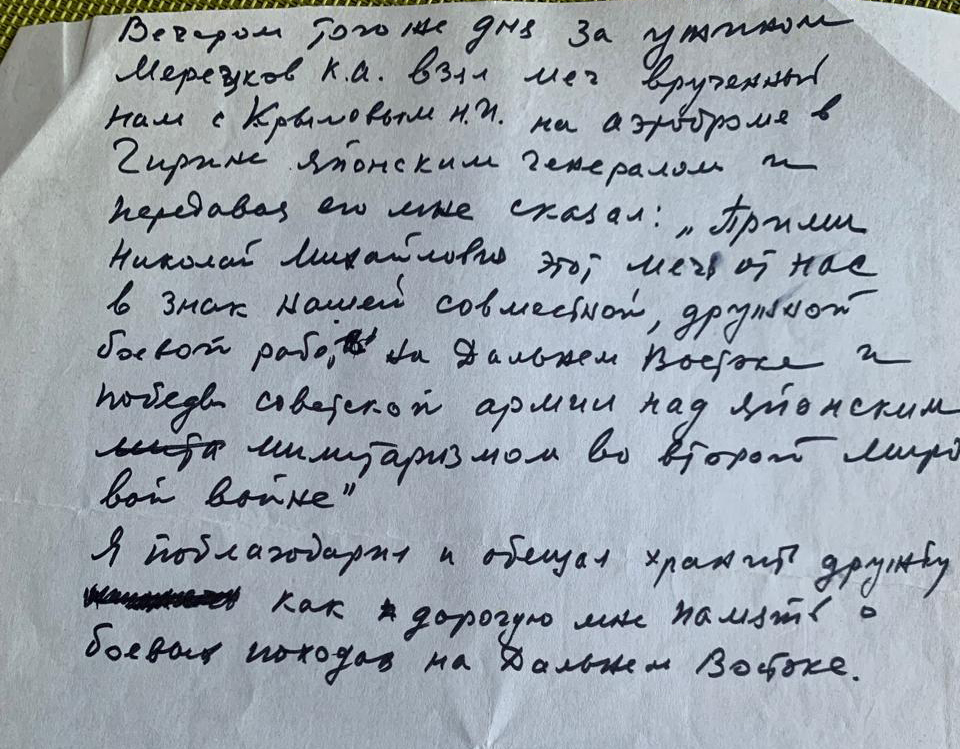 Вечером того же дня за ужином
Мерецков К.А. взял меч врученный
нам с Крыловым Н.И. на аэродроме в
Гирине Японским генералом и
передавая его мне сказал: „Прими
Николай Михайлович этот меч от нас
в знак нашей совместной, дружной
боевой работы на Дальнем Востоке и
победы советской армии над японским
милитаризмом во второй миро
вой войне"
Я поблагодарил и обещал хранить дружбу
как дорогую мне память о
боевых походах на Дальнем Востоке.